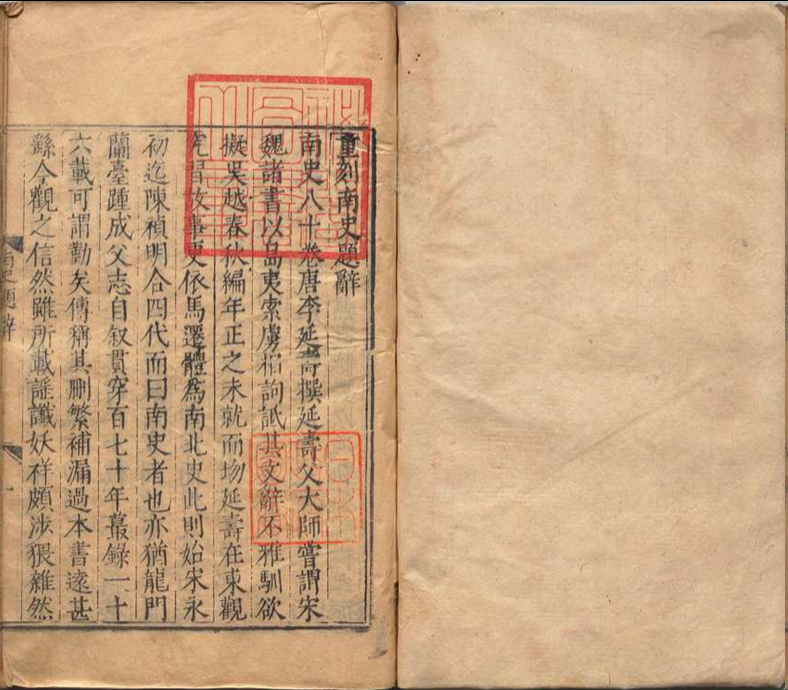 重刻南史題辭
南史八十卷唐李延壽撰延壽父大師嘗謂宋
魏諸書以島夷索虜相詢詆其文辭不雅馴欲
擬吳越春秋編年正之未就而歿延壽在東觀
究習故事更依馬遷體爲南北史此則始宋永
初迄陳禎明合四代而曰南史者也亦猶龍門
蘭臺踵成父志自叙貫穿百七十年叢錄一十
六載可謂勤矣傳稱其刪繁補漏過本書遠甚
繇今觀之信然雖所載謠讖妖祥頗涉猥雜然
南史題辭
一